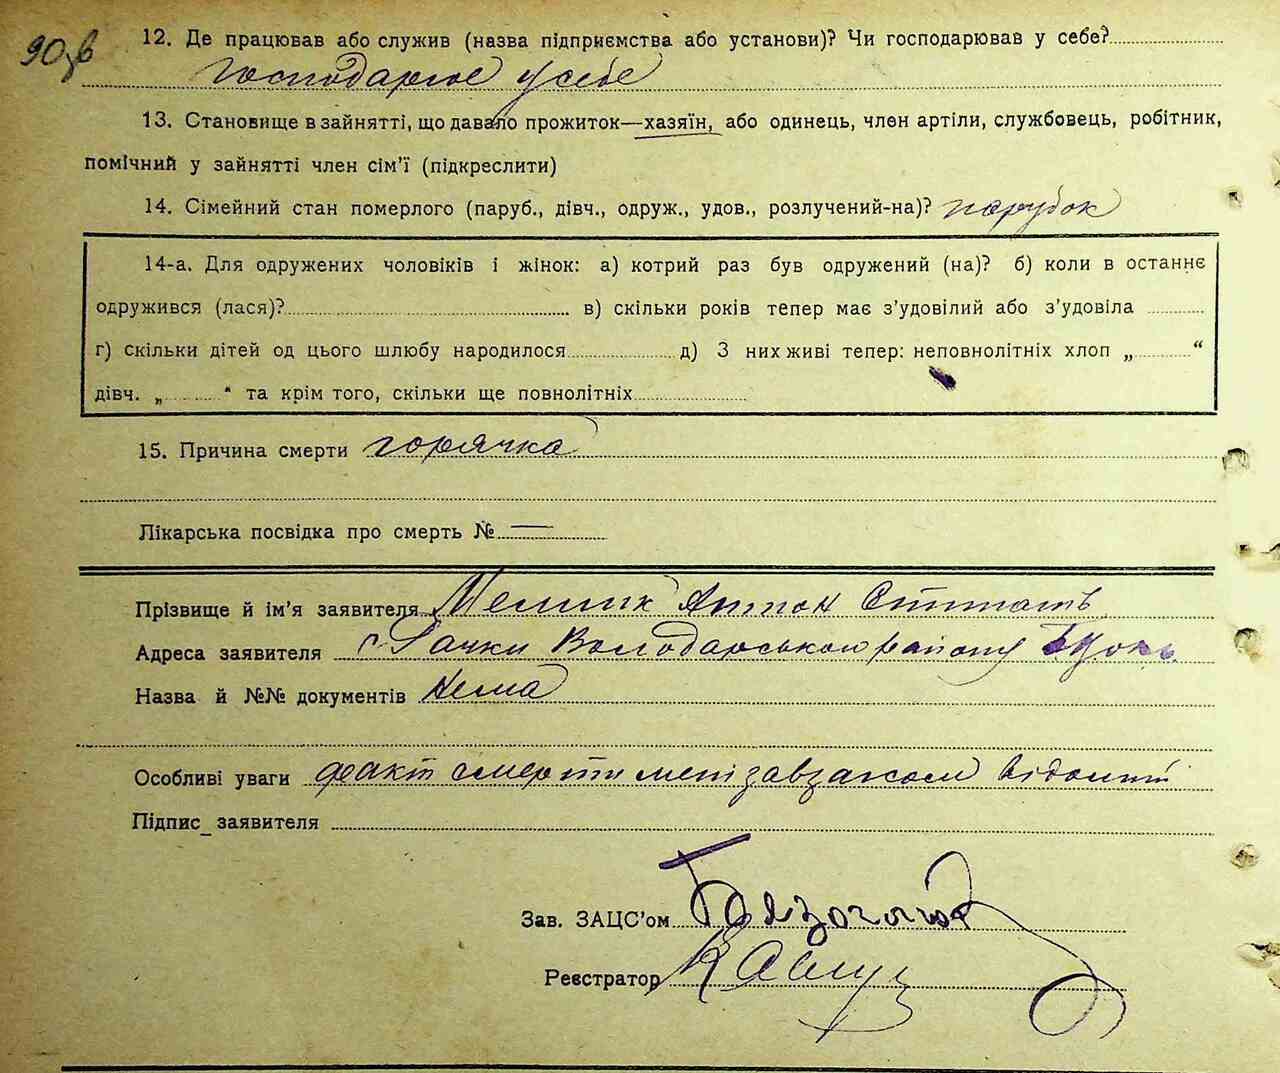 90зв
12. Де працював або служив (назва підприємства або установи)? Чи господарював у себе?
Господарює у себе
13. Становище в зайнятті, що давало прожиток—хазяїн, або одинець, член артіли, службовець, робітник,
помічний у зайнятті член сім’ї (підкреслити)
14. Сімейний стан померлого (паруб., дівч., одруж., удов., розлучений-на)? парубок
14-а. Для одружених чоловіків і жінок: а) котрий раз був одружений (на)? б) коли в останнє
одружився (лася)? в) скільки років тепер має з’удовілий або з’удовіла
г) скільки дітей од цього шлюбу народилося д) З них живі тепер: неповнолітніх хлоп „ “
дівч. „ “ та крім того, скільки ще повнолітніх
15. Причина смерти горячка
Лікарська посвідка про смерть № —
Прізвище й ім’я заявителя Мельник Антон
Адреса заявителя с Рачки Володарського району
Назва й №№ документів Нема
Особливі уваги факт смерти мені завзаксом відомий
Підпис заявителя
Зав. ЗАЦС’ом
Реєстратор